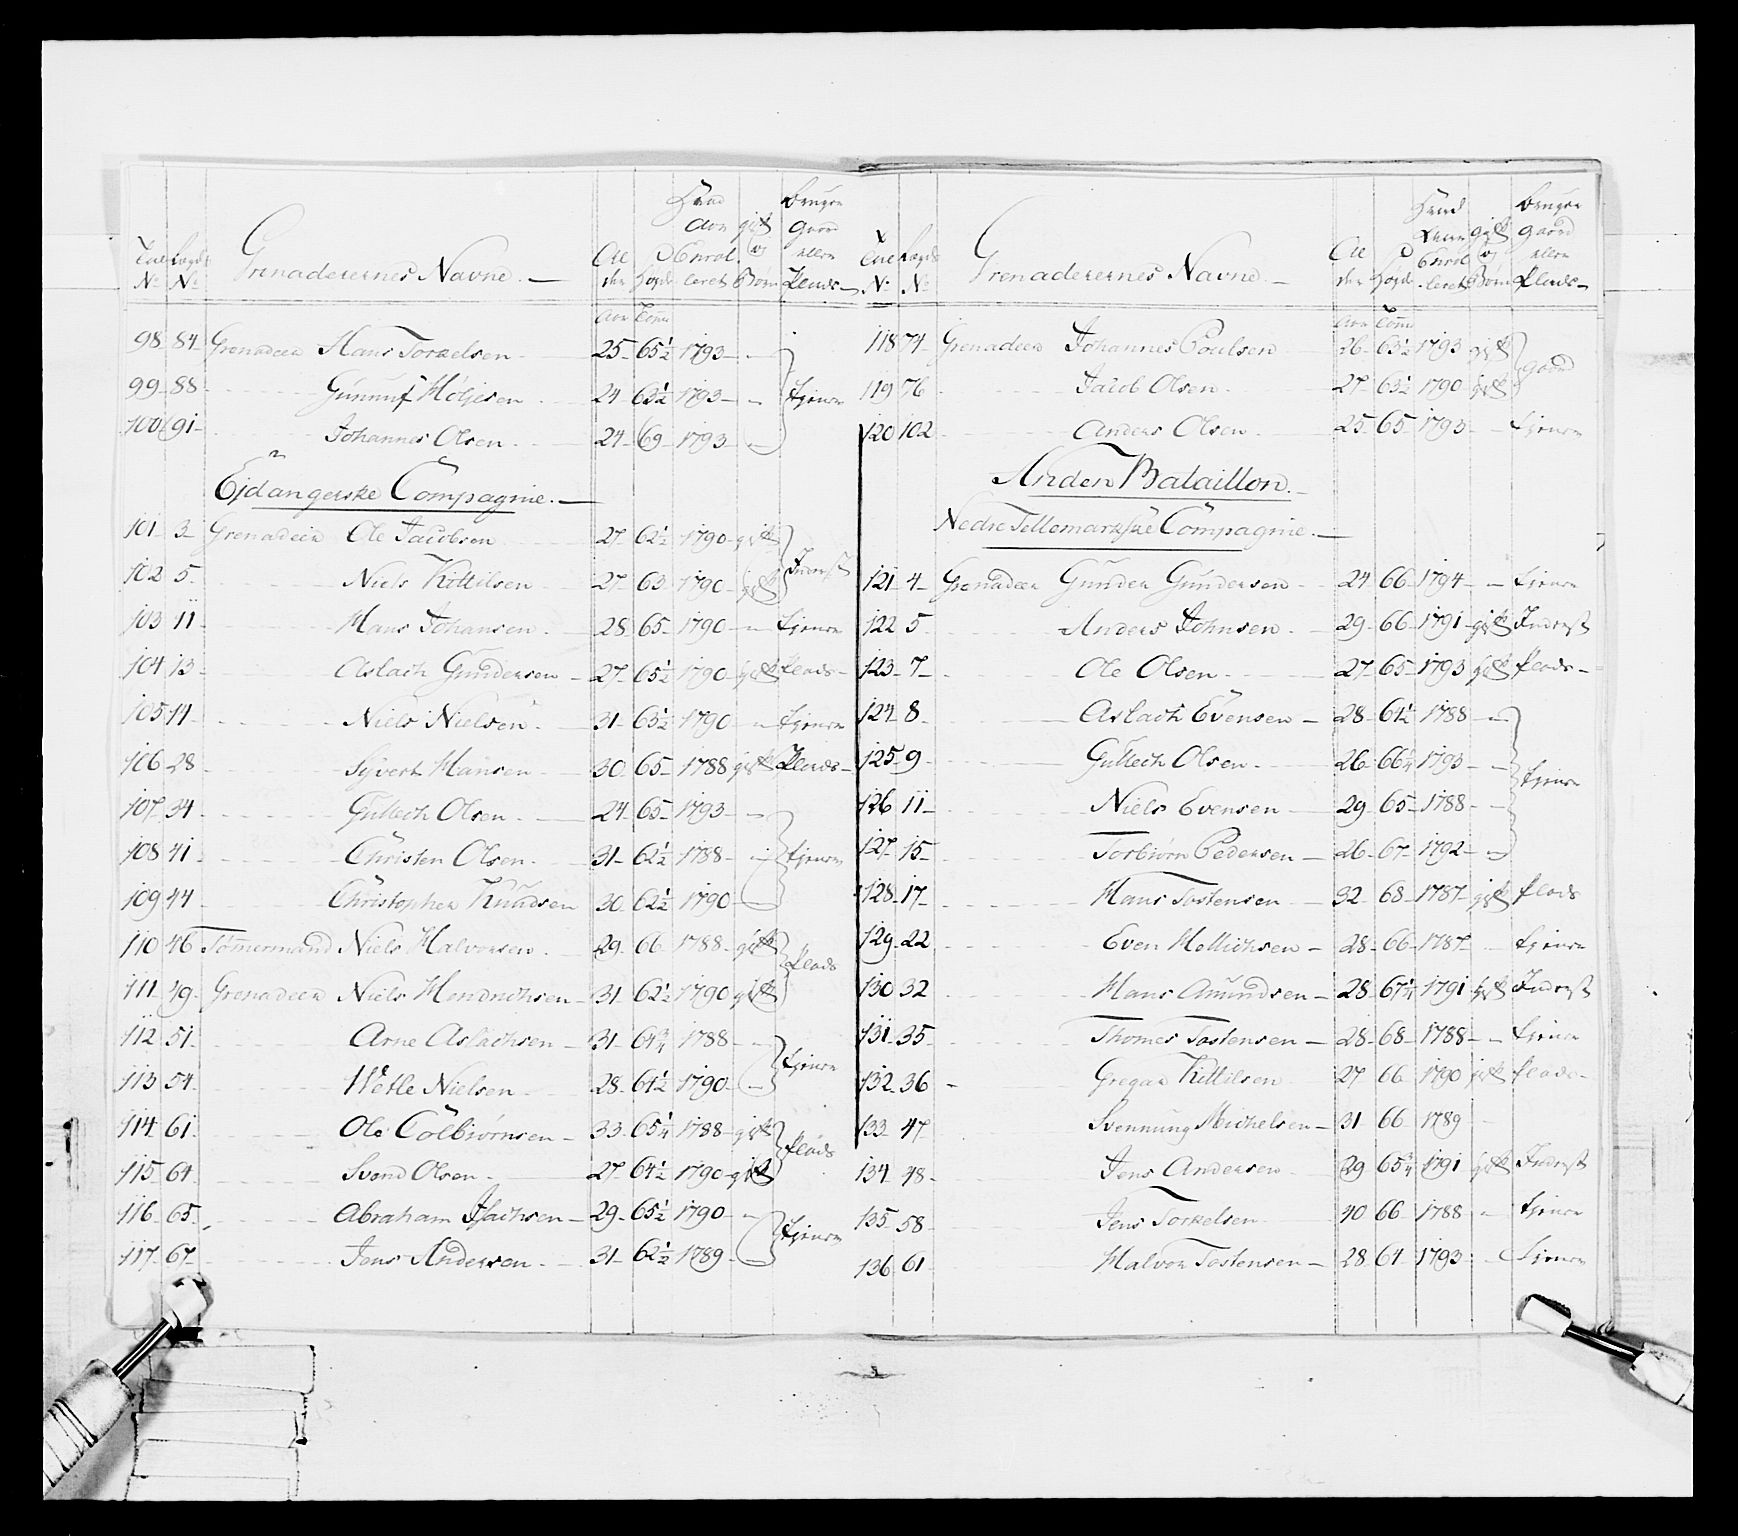 Grenaderernes Navne.
No No Al der Høyde Enrol leret gift og Børn bruger gaard eller Plads
Aar Tom
98 84 Grenadeer Hans Torkelsen 25 65½ 1793
99 88 Gunnuf Høljesen 24 63½ 1793 tjener
100 91 Johannes Olsen 24 69 1793
Ejdangerske Compagnie.
101 3 Grenadeer Ole Jacobsen 27 62½ 1790 gift
102 5 Niels Kittilsen 27 63 1790 gift Inderst
103 11 Hans Johansen 28 65 1790 tjener
104 13 Aslach Gundersen 27 65½ 1790 gift Plads
105 14 Niels Nielsen 31 63½ 1790 tjener
106 28 Syvert Hansen 30 65 1788 gift Plads
107 34 Gullech Olsen 24 65 1793
108 41 Christen Olsen 31 62½ 1788 tjener
109 44 Christopher Knudsen 30 62½ 1790
110 46 Tømermand Niels Halvorsen 29 66 1788 gift Plads
111 49 Grenadeer Niels Hendrichsen 31 62½ 1790 gift
112 51 Arne Aslachsen 31 64¾ 1788
113 54 Wetle Nielsen 28 61½ 1790 tjener
114 61 Ole Colbiørnsen 33 65¼ 1788 gift Plads
115 64 Svend Olsen 27 64½ 1790 gift
116 65 Abraham Isachsen 29 65½ 1790
117 67 Jens Andersen 31 62½ 1789 tjener
Grenaderernes Navne
No No Al der Høyde Enrol leret gift og Børn bruger gaard eller Plads
Aar Tom
118 74 Grenadeer Johannes Poulsen 26 63½ 1793 gift gaard
119 76 Jacob Olsen 27 63½ 1790 gift
120 102 Anders Olsen 25 65 1793 tjener
Anden Bataillon.
Nedre Tellemarkske Compagnie.
121 4 Grenadeer Gunder Gundersen 24 66 1794 tjener
122 5 Anders Johnsen 29 66 1791 gift Inderst
123 7 Ole Olsen 27 65 1793 gift Plads
124 8 Aslach Evensen 28 64½ 1788
125 9 Gullech Olsen 26 66¼ 1793 tjener
126 11 Niels Evensen 29 65 1788
127 15 Torbiørn Pedersen 26 67 1792
128 17 Hans Tostensen 32 68 1787 gift Plads
129 22 Even Hellichsen 28 66 1787 tjener
130 32 Hans Amundsen 28 67¼ 1791 gift Inderst
131 35 Thomes Tostensen 28 68 1788 tjener
132 36 Gregar Kittilsen 27 66 1790 gift Plads
133 47 Svennung Michelsen 31 66 1789
134 48 Jens Andersen 29 65¾ 1791 gift Inderst
135 58 Jens Torkelsen 40 66 1788 tjener
136 61 Halvor Tostensen 28 64 1793 tjener